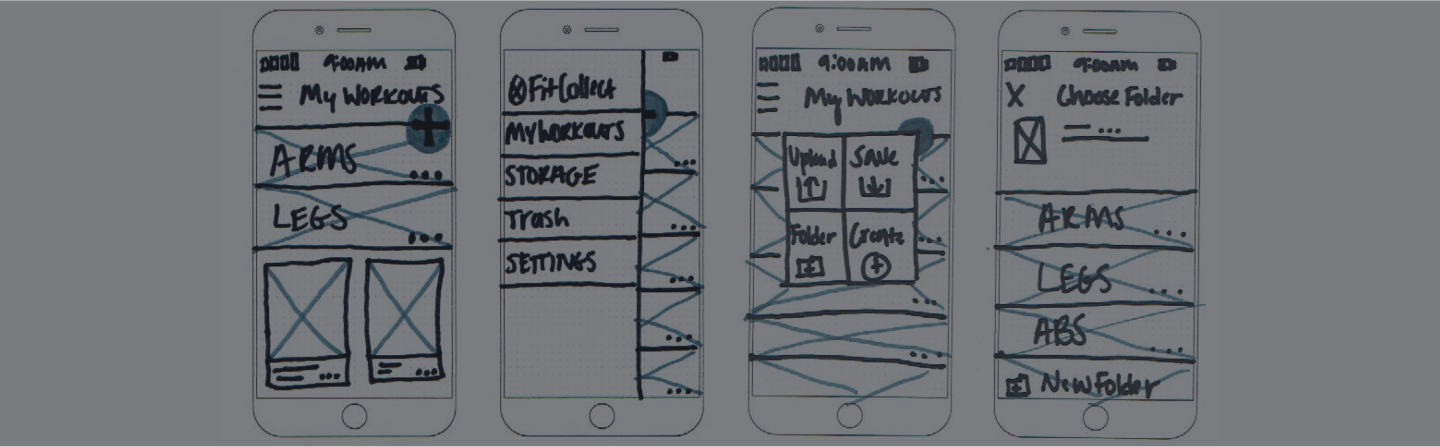 9:00AM
My WORKOUTS
ARMS
LEGS
FitCollect
MY WORKOUTS
STORAGE
Trash
SETTINGS
9:00AM
My WORKOUTS
Upload SAVE
Folder Create
9:00AM
X Choose Folder
ARMS
LEGS
ABS
New Folder